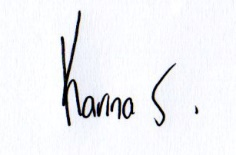 Karina S.